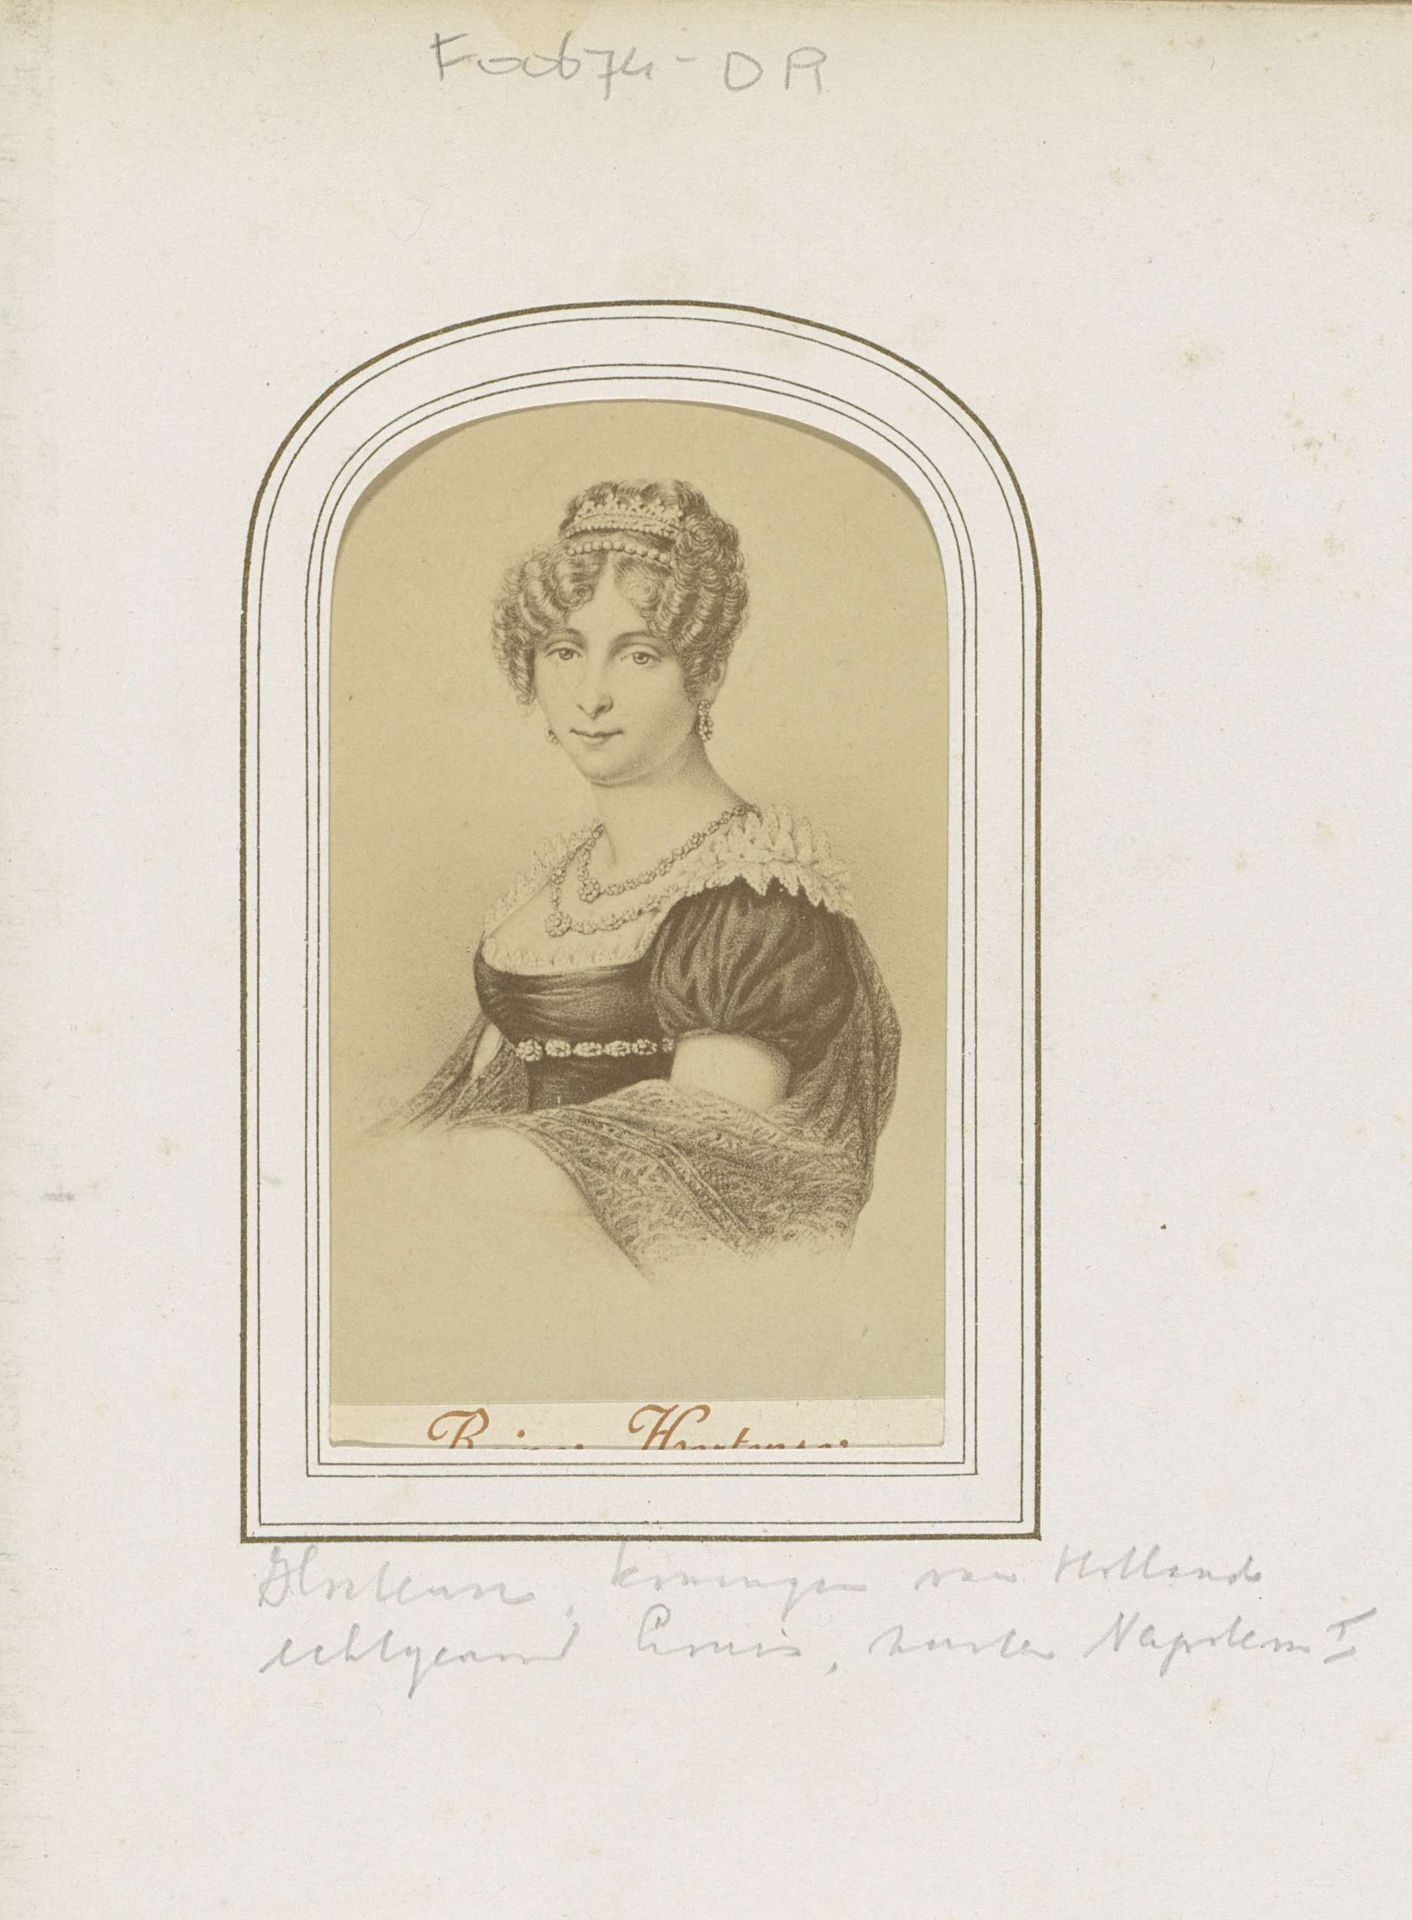 F00674-DR
Reine Hortense
Hortense, koningin van Holland
echtgenoot Louis, moeder Napoleon I